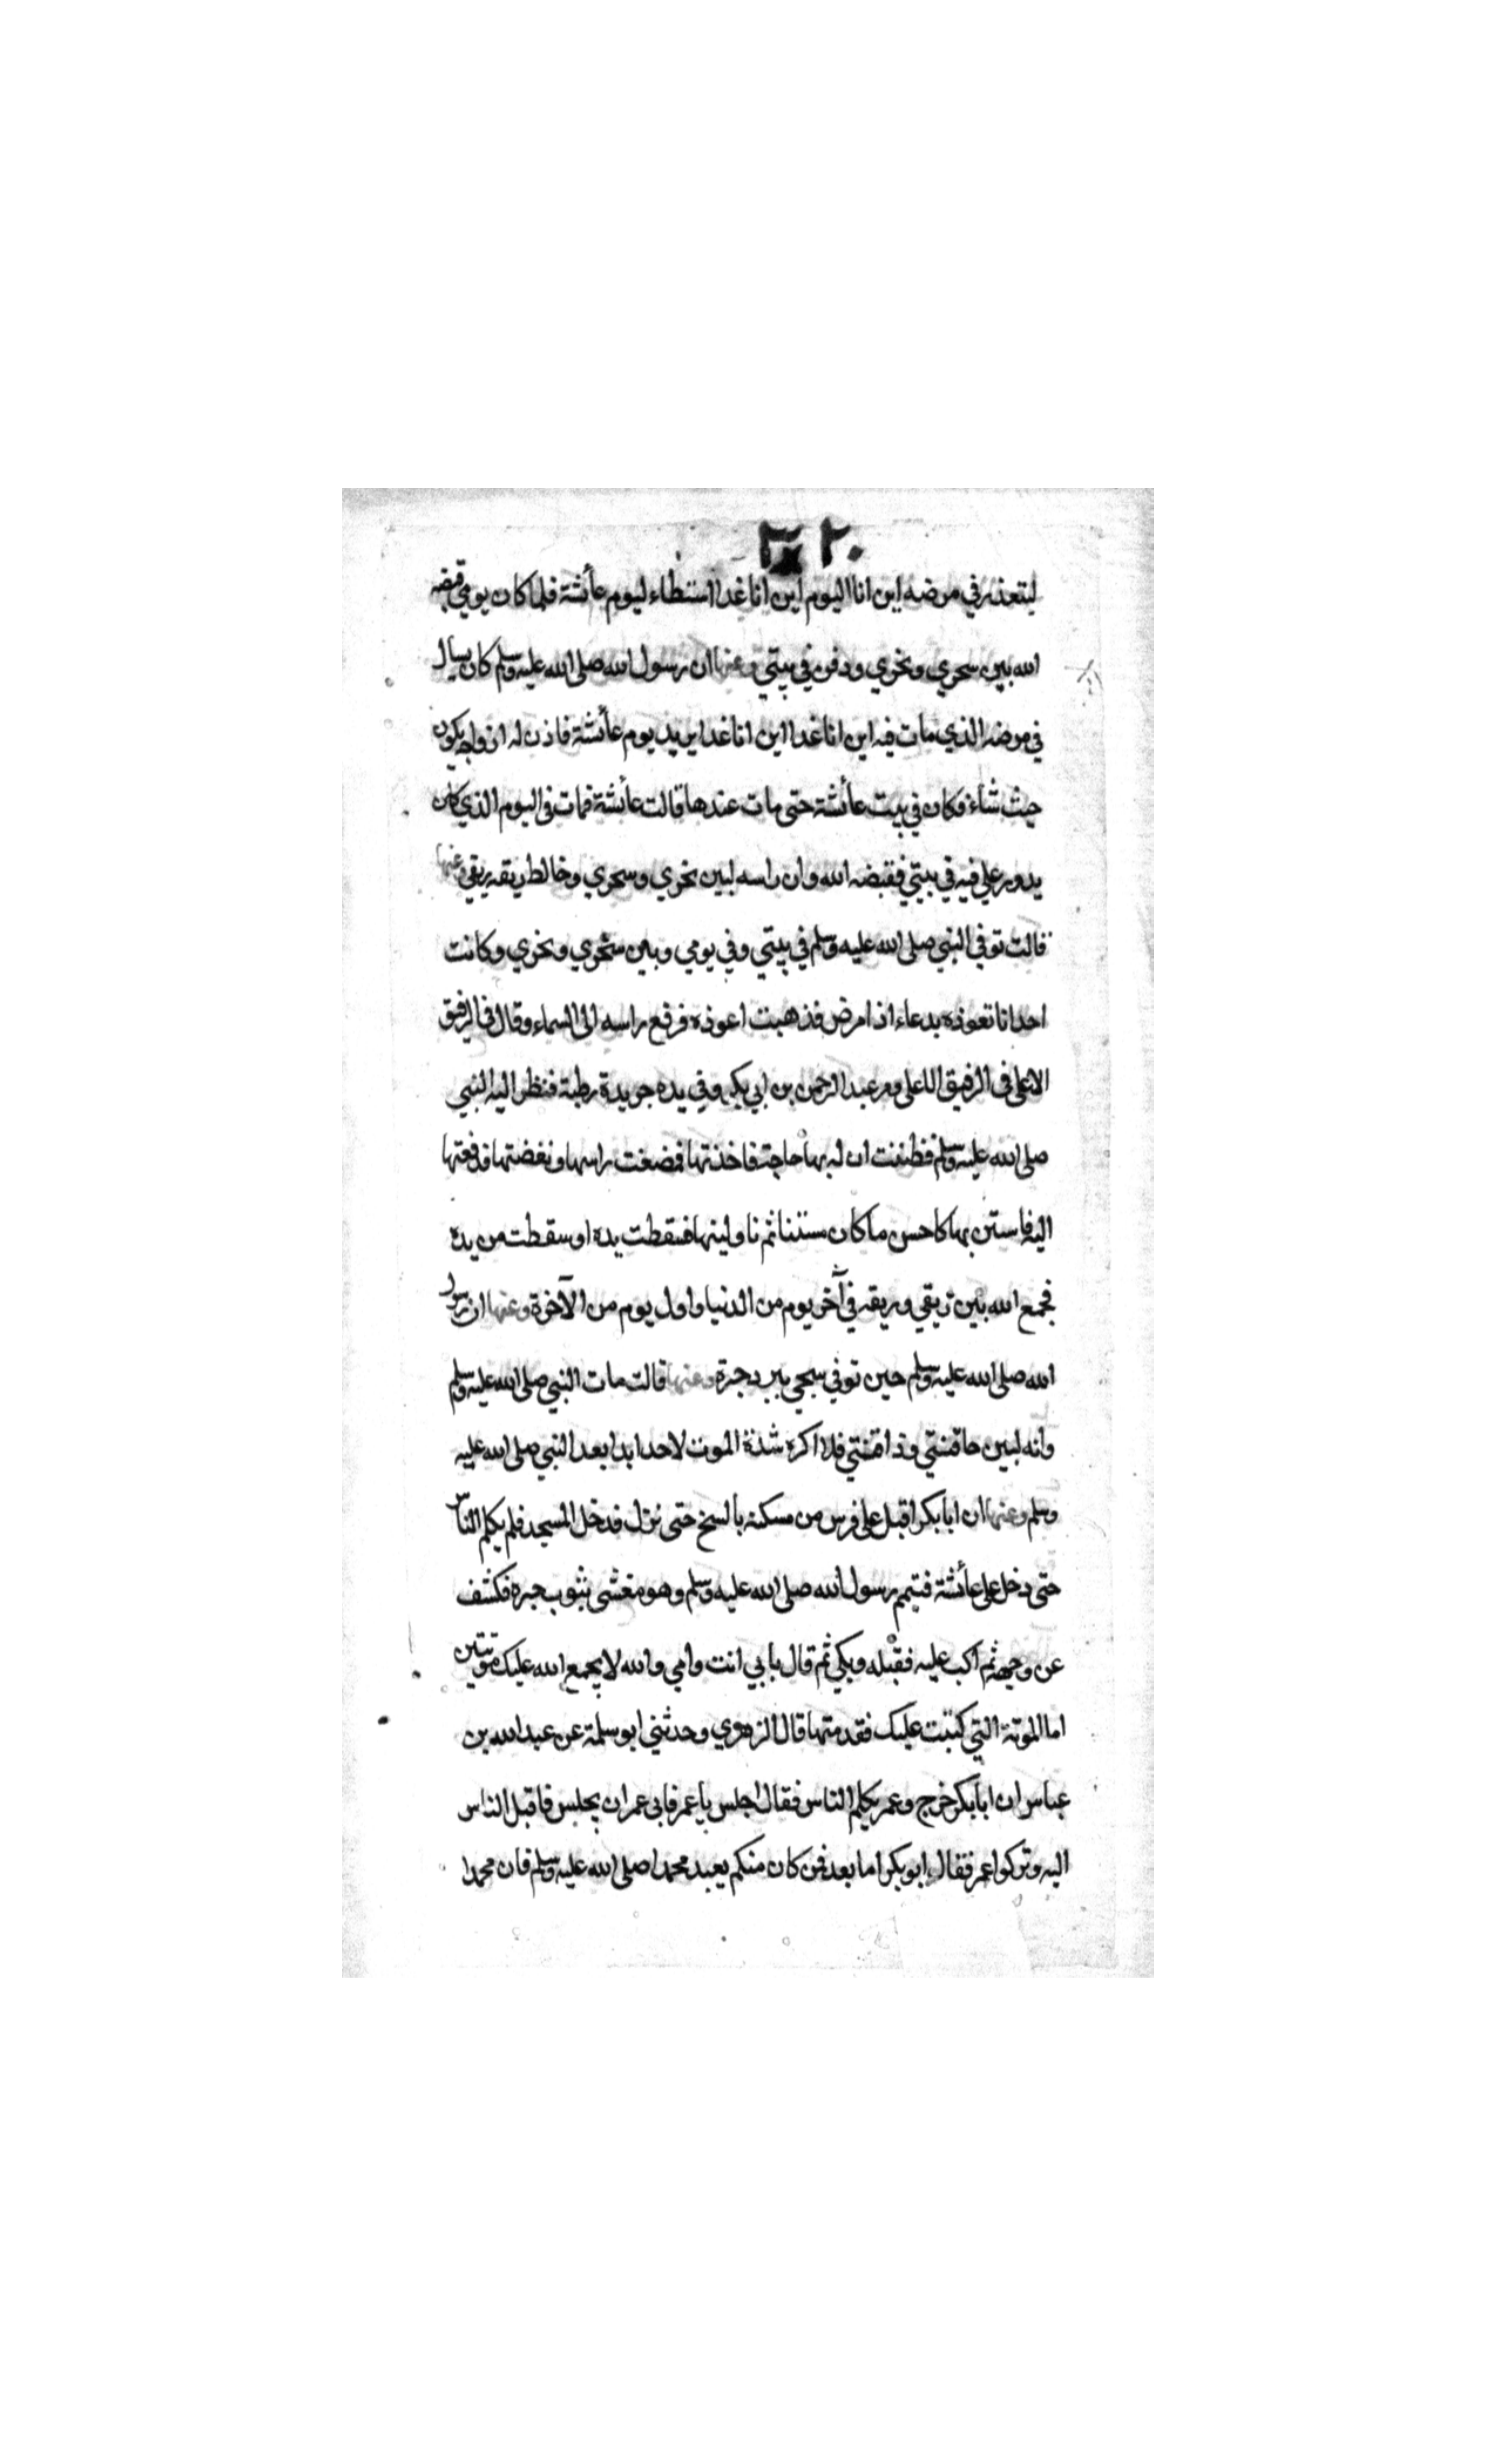 ٢٠ ٣
ليتعذر في مرضه اين انا اليوم اين انا غدا استبطاء ليوم عائشة فلما كان يومي قبضه
الله بين سحري ونحري ودفن في بيتي وعنها ان رسول الله صلى الله عليه وسلم كان يسال
في مرضه الذي مات فيه اين انا غدا اين انا غدا يريد يوم عائشة فاذن له ازواجه يكون
حيث شاء فكان في بيت عائشة حتى مات عندها قالت عائشة فمات في اليوم الذي كان
يدور علي فيه في بيتي فقبضه الله وان راسه لبين نحري وسحري وخالط ريقه ريقي عنها
قالت توفي النبي صلى الله عليه وسلم في بيتي وفي يومي وبين سحري ونحري وكانت
احدانا تعوذه بدعاء اذا مرض فذهبت اعوذه فرفع راسه الى السماء وقال في الرفيق
الاعلى في الرفيق الاعلى ومر عبد الرحمن بن ابي بكر وفي يده جريدة رطبة فنظر اليه النبي
صلى الله عليه وسلم فظننت ان له بها حاجة فاخذتها فمضغت راسها ونفضتها فدفعتها
اليه فاستن بها كاحسن ما كان مستنا ثم ناولنيها فسقطت يده او سقطت من يده
فجمع الله بين ريقي وريقه في آخر يوم من الدنيا واول يوم من الآخرة وعنها ان رسول
الله صلى الله عليه وسلم حين توفي سجي ببرد حبرة وعنها قالت مات النبي صلى الله عليه وسلم
وانه لبين حاقنتي وذاقنتي فلا اكره شدة الموت لاحد ابدا بعد النبي صلى الله عليه
وسلم وعنها ان ابا بكر اقبل على فرس من مسكنه بالسنح حتى نزل فدخل المسجد فلم يكلم الناس
حتى دخل على عائشة فتيمم رسول الله صلى الله عليه وسلم وهو مغشى بثوب حبره فكشف
عن وجهه ثم اكب عليه فقبله وبكى ثم قال بابي انت وامي والله لا يجمع الله عليك موتتين
اما الموتة التي كتبت عليك فقد متها قال الزهري وحدثني ابو سلمة عن عبد الله بن
عباس ان ابا بكر خرج وعمر يكلم الناس فقال اجلس يا عمر فابى عمر ان يجلس فاقبل الناس
اليه وتركوا عمر فقال ابو بكر اما بعد فمن كان منكم يعبد محمدا صلى الله عليه وسلم فان محمدا